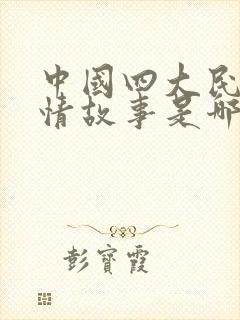 中國四大民
情故事是哪
彭寶霞